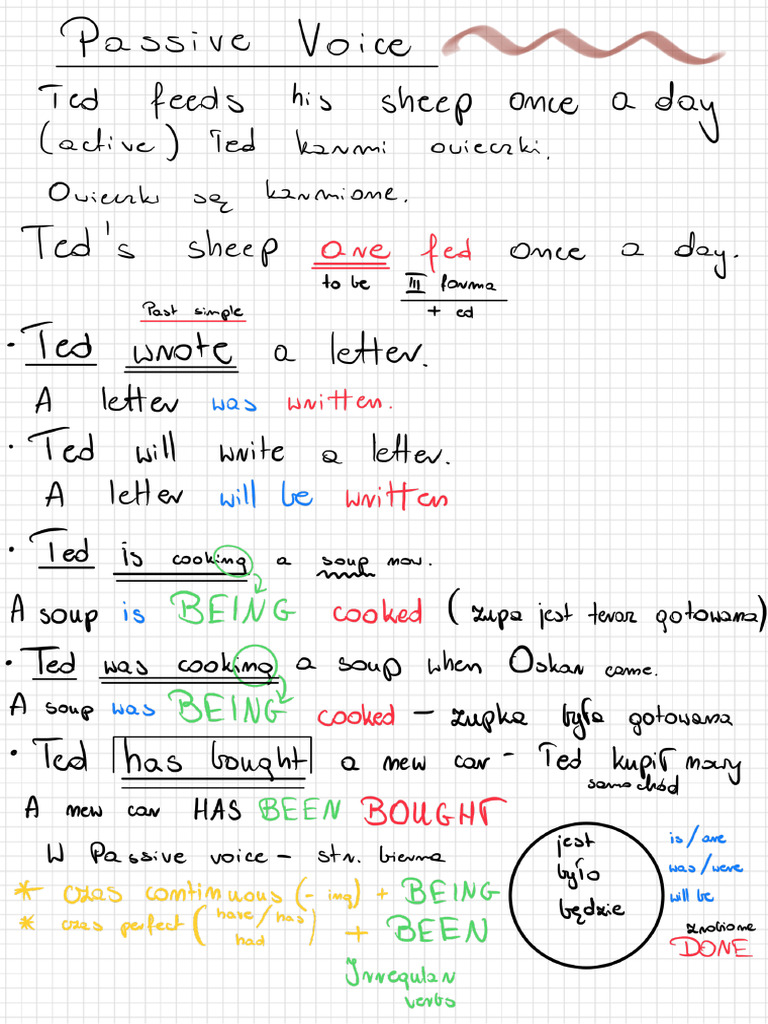 Passive Voice
Ted feeds his sheep once a day
(active) Ted karmi owieczki.
Owieczki są karmione.
Ted's sheep are fed once a day.
to be III forma
+ ed
Past simple
• Ted wrote a letter.
A letter was written.
• Ted will write a letter.
A letter will be written
• Ted is cooking a soup now.
A soup is BEING cooked (zupa jest teraz gotowana)
• Ted was cooking a soup when Oskar came.
A soup was BEING cooked – zupka była gotowana
• Ted has bought a new car – Ted kupił nowy
samochód
A new car HAS BEEN BOUGHT
W Passive voice – str. bierna
* czas continuous (-ing) + BEING
* czas perfect (have/has had) + BEEN
Irregular
verbs
jest
było
będzie
is/are
was/were
will be
zrobione
DONE